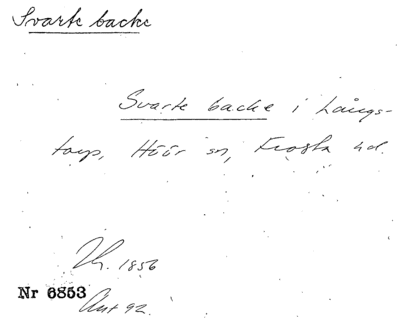 Svarte backe
Svarte backe i Långs-
torp, Höör sn, Frosta hd.
Th. 1856
Nr 6853
Ant 92.